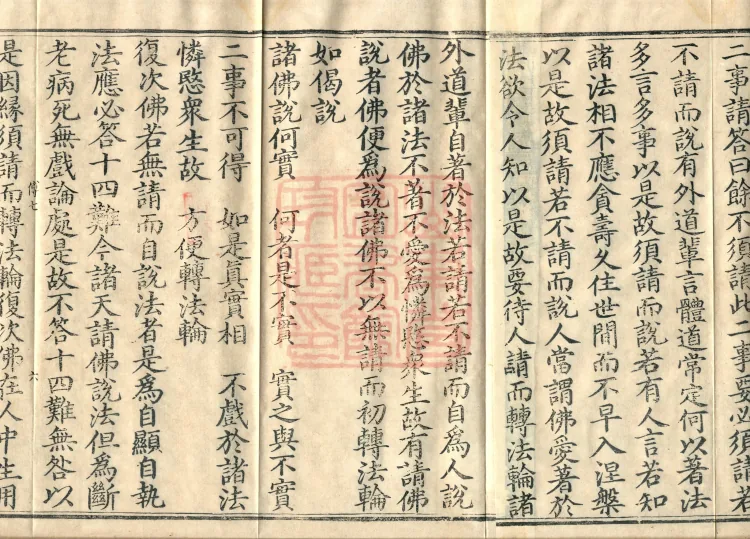 二事請答曰餘不須請此二事要必須請若
不請而說有外道輩言體道常定何以著法
多言多事以是故須請而說若有人言若知
諸法相不應貪壽久住世間而不早入涅槃
以是故須請若不請而說人當謂佛愛著於
法欲令人知以是故要待人請而轉法輪諸
外道輩自著於法若請若不請而自為人說
佛於諸法不著不愛為憐愍衆生故有請佛
說者佛便為說諸佛不以無請而初轉法輪
如偈說
諸佛說何實 何者是不實 實之與不實
二事不可得 如是眞實相 不戲於諸法
憐愍衆生故 方便轉法輪
復次佛若無請而自說法者是為自顯自執
法應必答十四難今諸天請佛說法但為斷
老病死無戲論處是故不答十四難無咎以
傅七 六
是因縁須請而轉法輪復次佛在人中生用